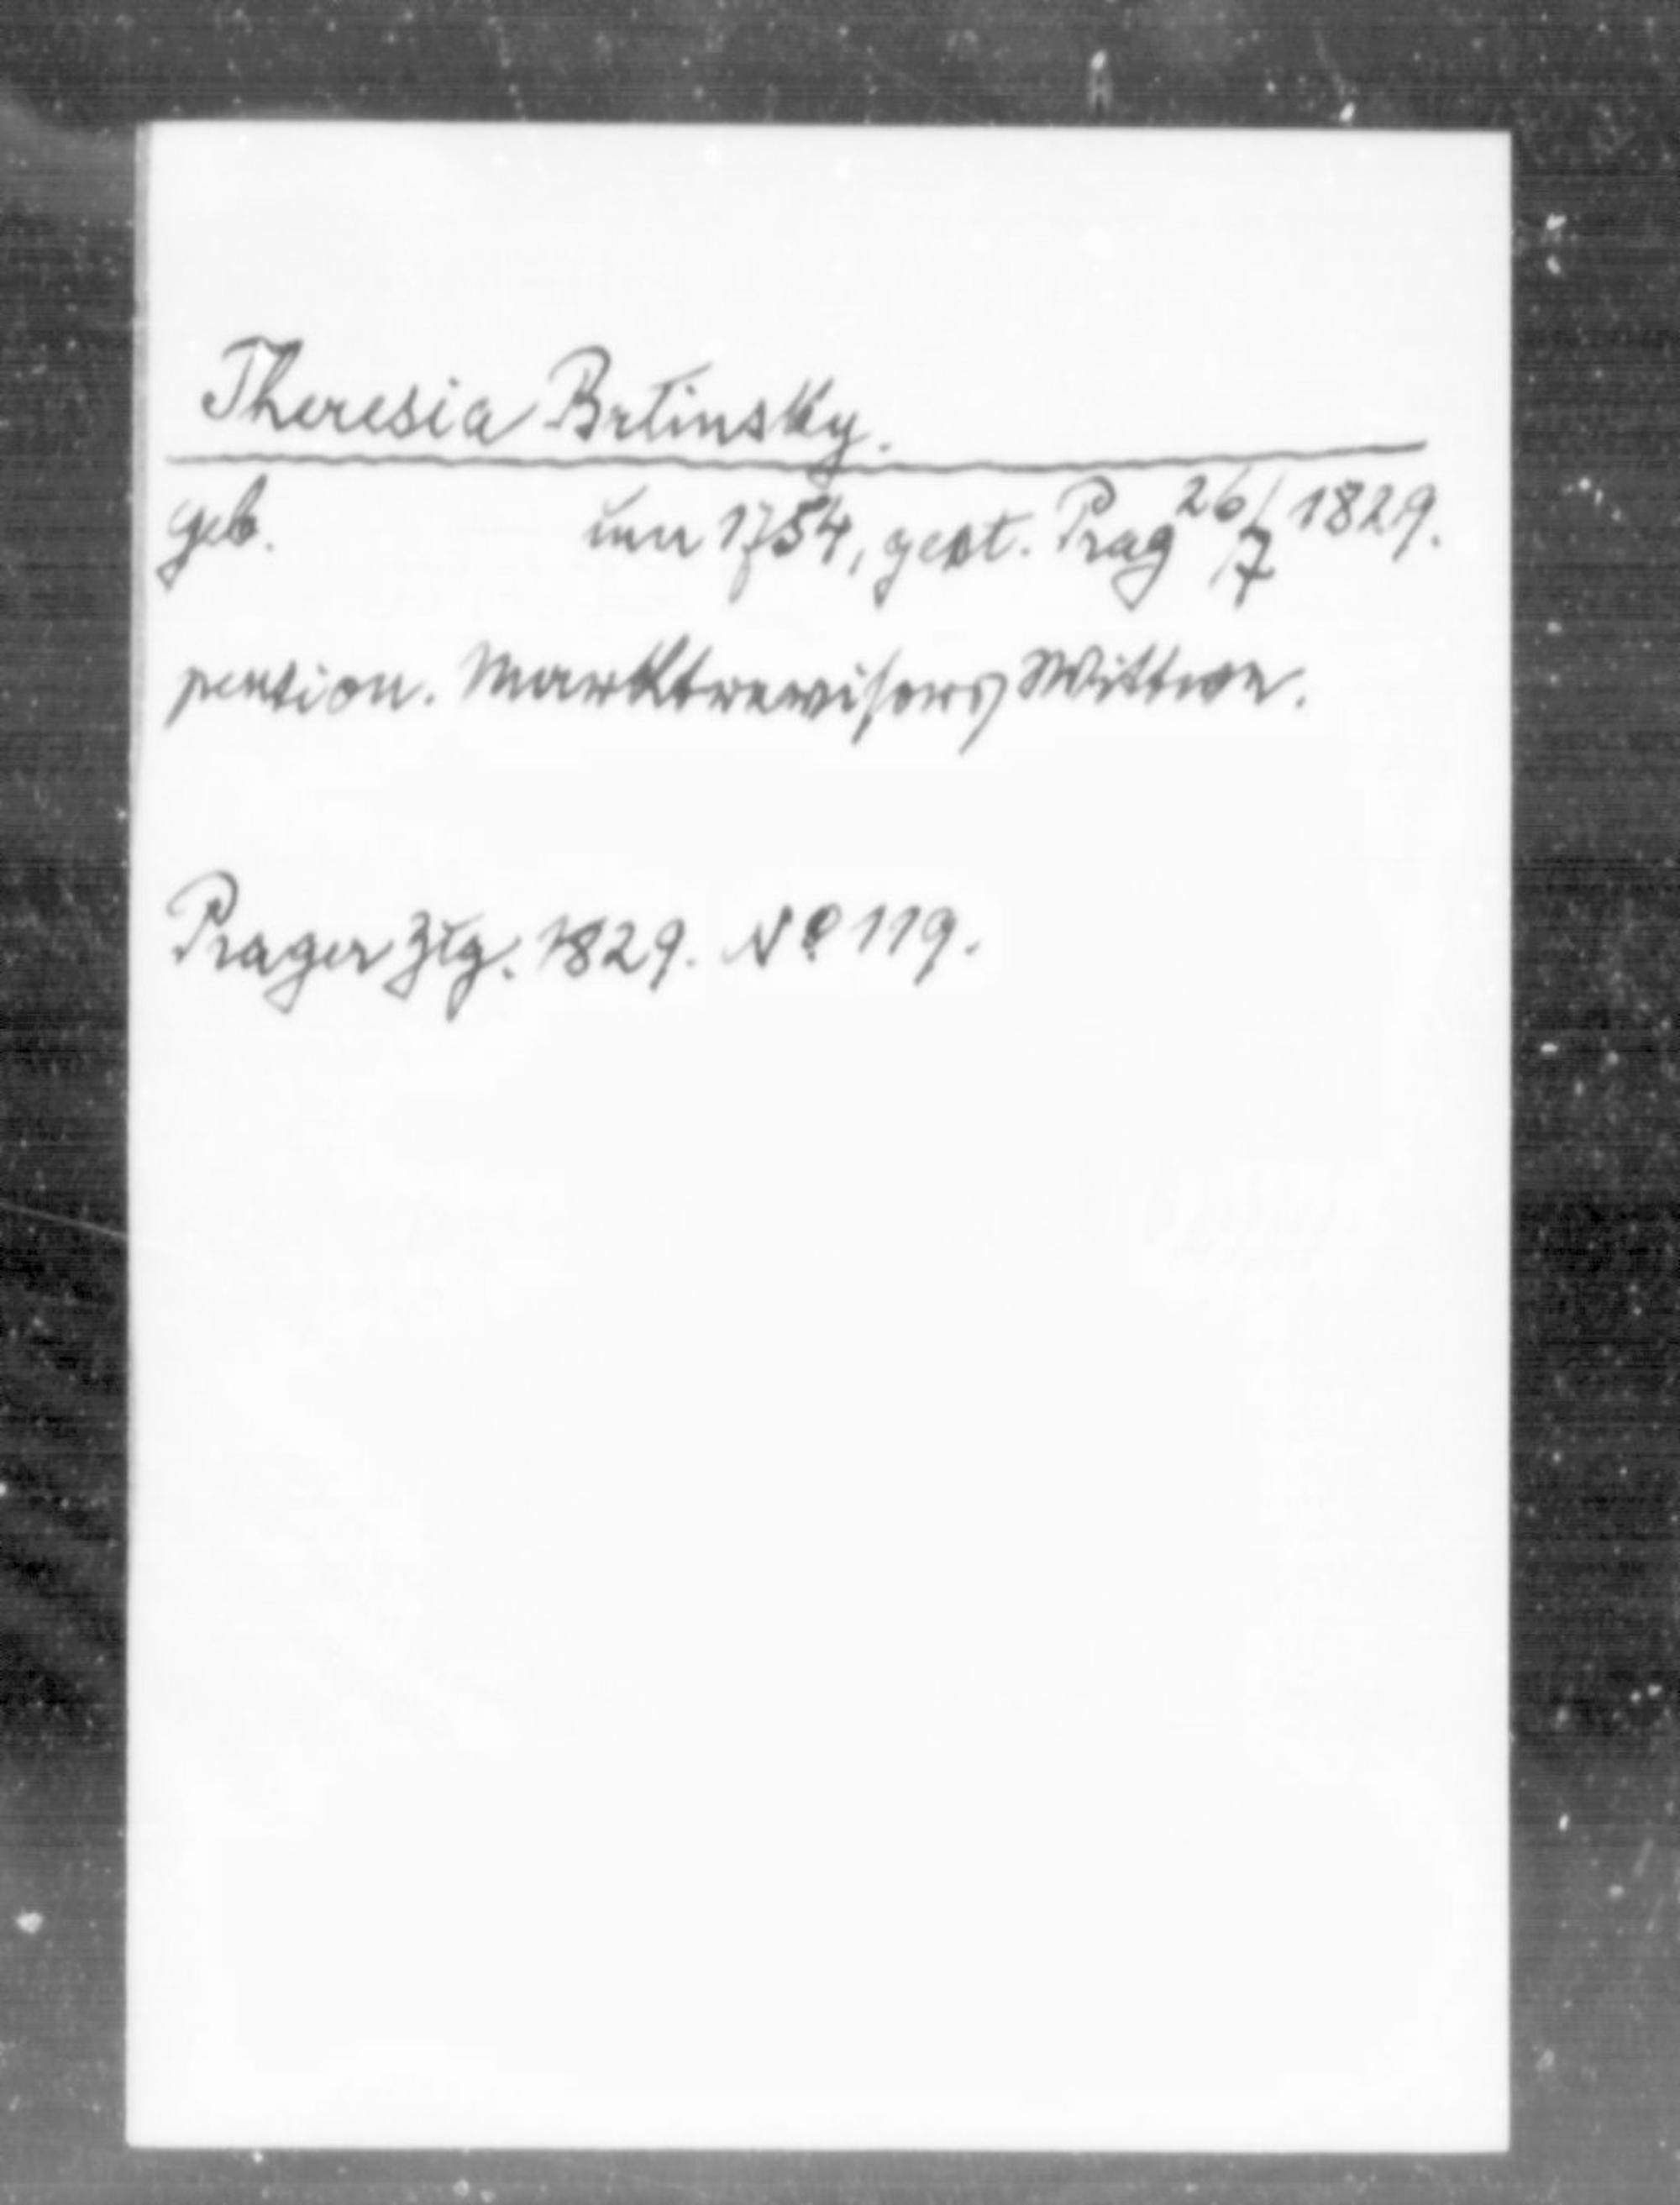 Theresia Brtinsky.
geb. um 1754, gest. Prag 26/7 1829.
pension. Marktrevisors Wittwe.
Prager Ztg. 1829. No 119.